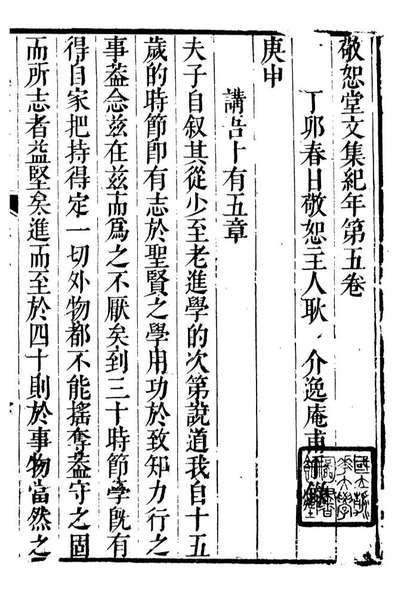 敬恕堂文集紀年第五卷
丁卯春日敬恕主人耿介逸庵甫
庚申
講吾十有五章
夫子自叙其從少至老進學的次第說道我自十五
歲的時節即有志於聖賢之學用功於致知力行之
事葢念兹在兹而爲之不厭矣到三十時節學旣有
得自家把持得定一切外物都不能搖奪葢守之固
而所志者益堅矣進而至於四十則於事物當然之